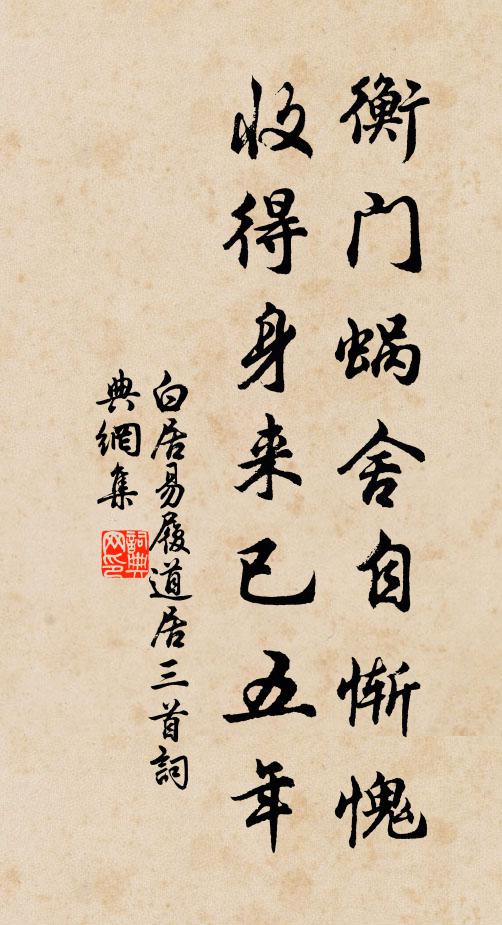 衡门蜗舍自惭愧
收得身来已五年
白居易履道居三首詞
典網集
詞典
网印